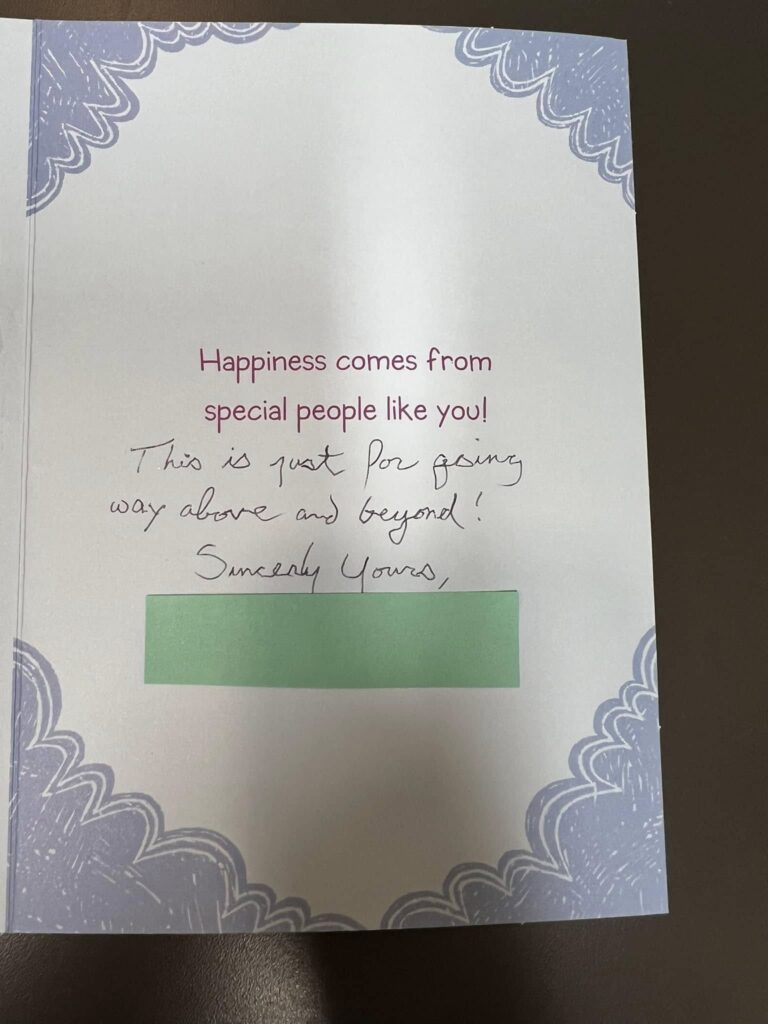 Happiness comes from
special people like you!
This is just for going
way above and beyond!
Sincerly Yours,